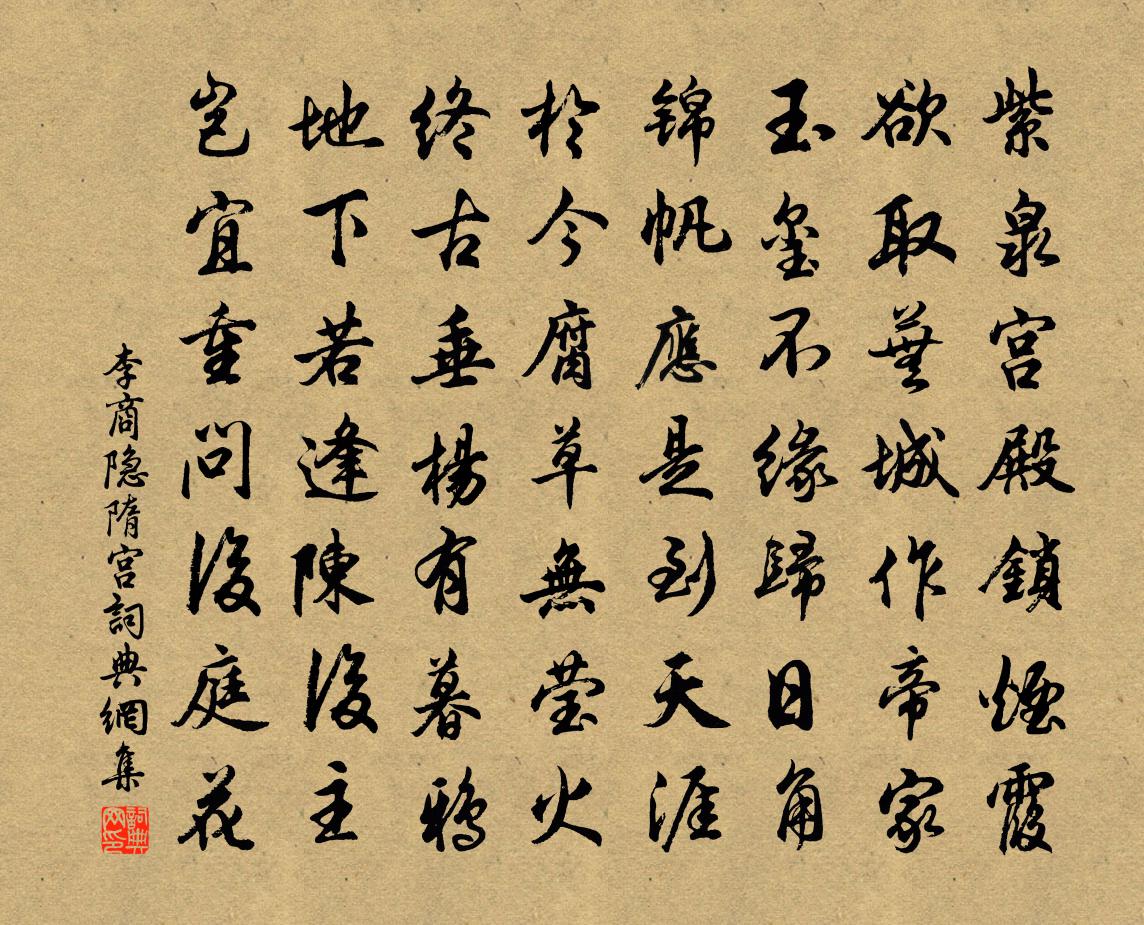 紫泉宫殿鎖煙霞
欲取蕪城作帝家
玉璽不緣歸日角
錦帆應是到天涯
於今腐草無螢火
終古垂楊有暮鴉
地下若逢陳後主
豈宜重問後庭花
李商隐隋宫詞典網集
詞典網印